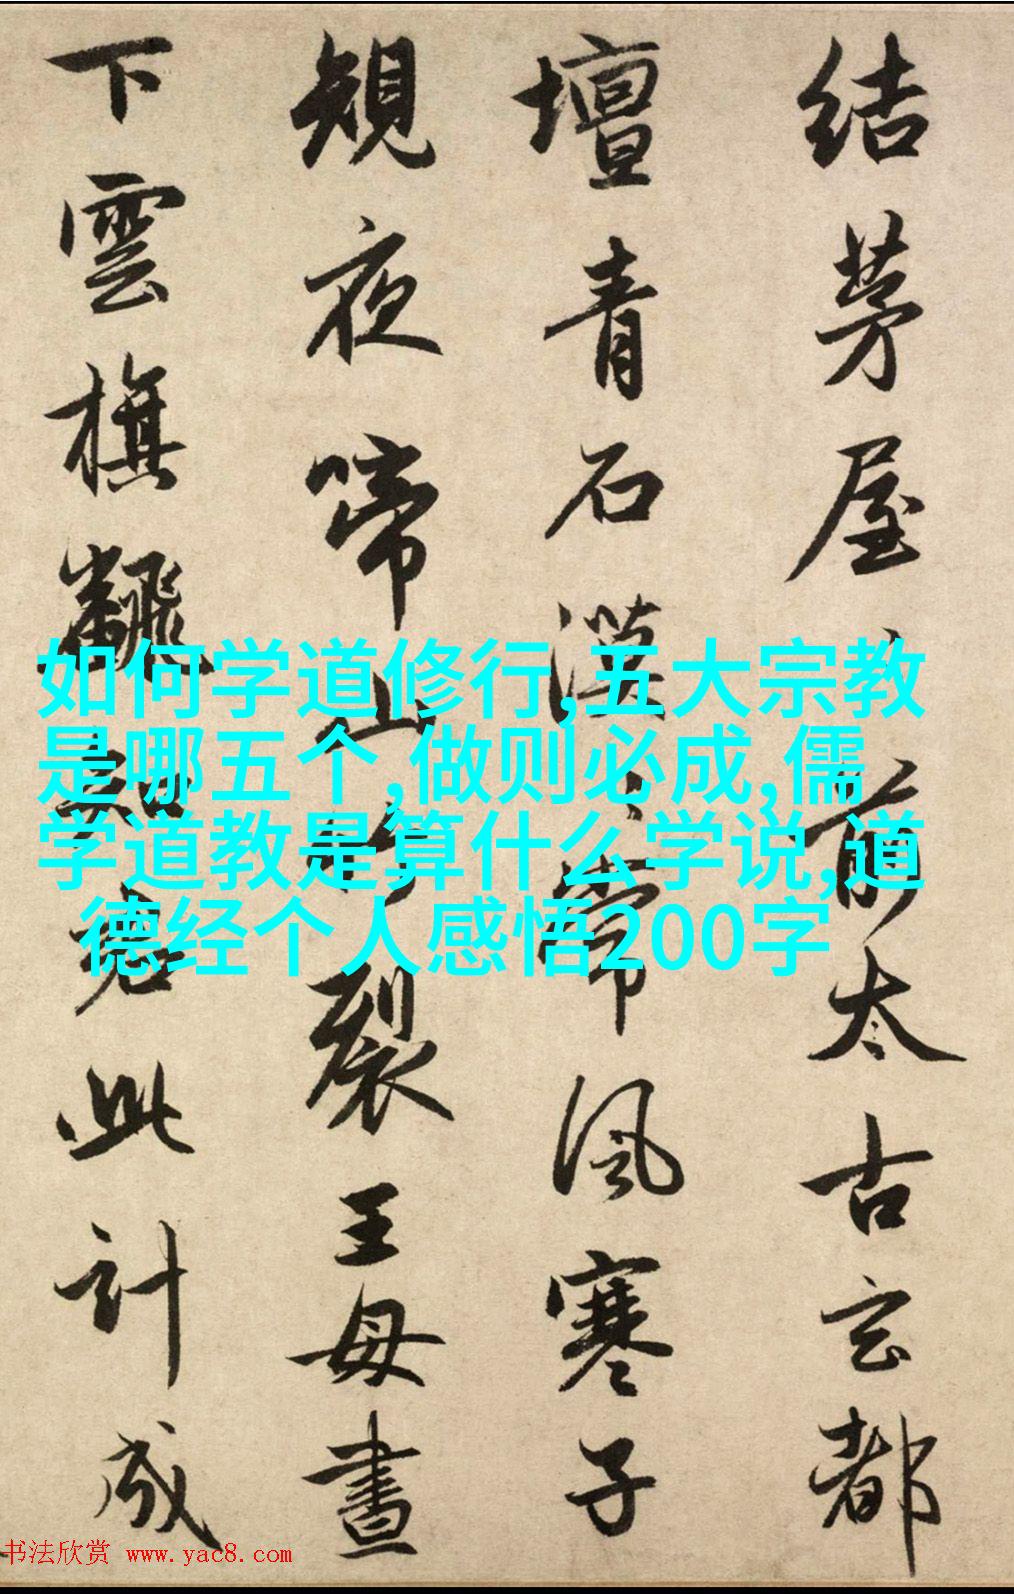 結茅屋〻前太古玄都
壇青石漠〻常風寒子
規夜啼山竹裂王母晝
下雲旗飜知君此計成
如何学道修行,五大宗教
是哪五个,做则必成,儒
学道教是算什么学说,道
德经个人感悟200字
书法欣赏 www.yac8.com